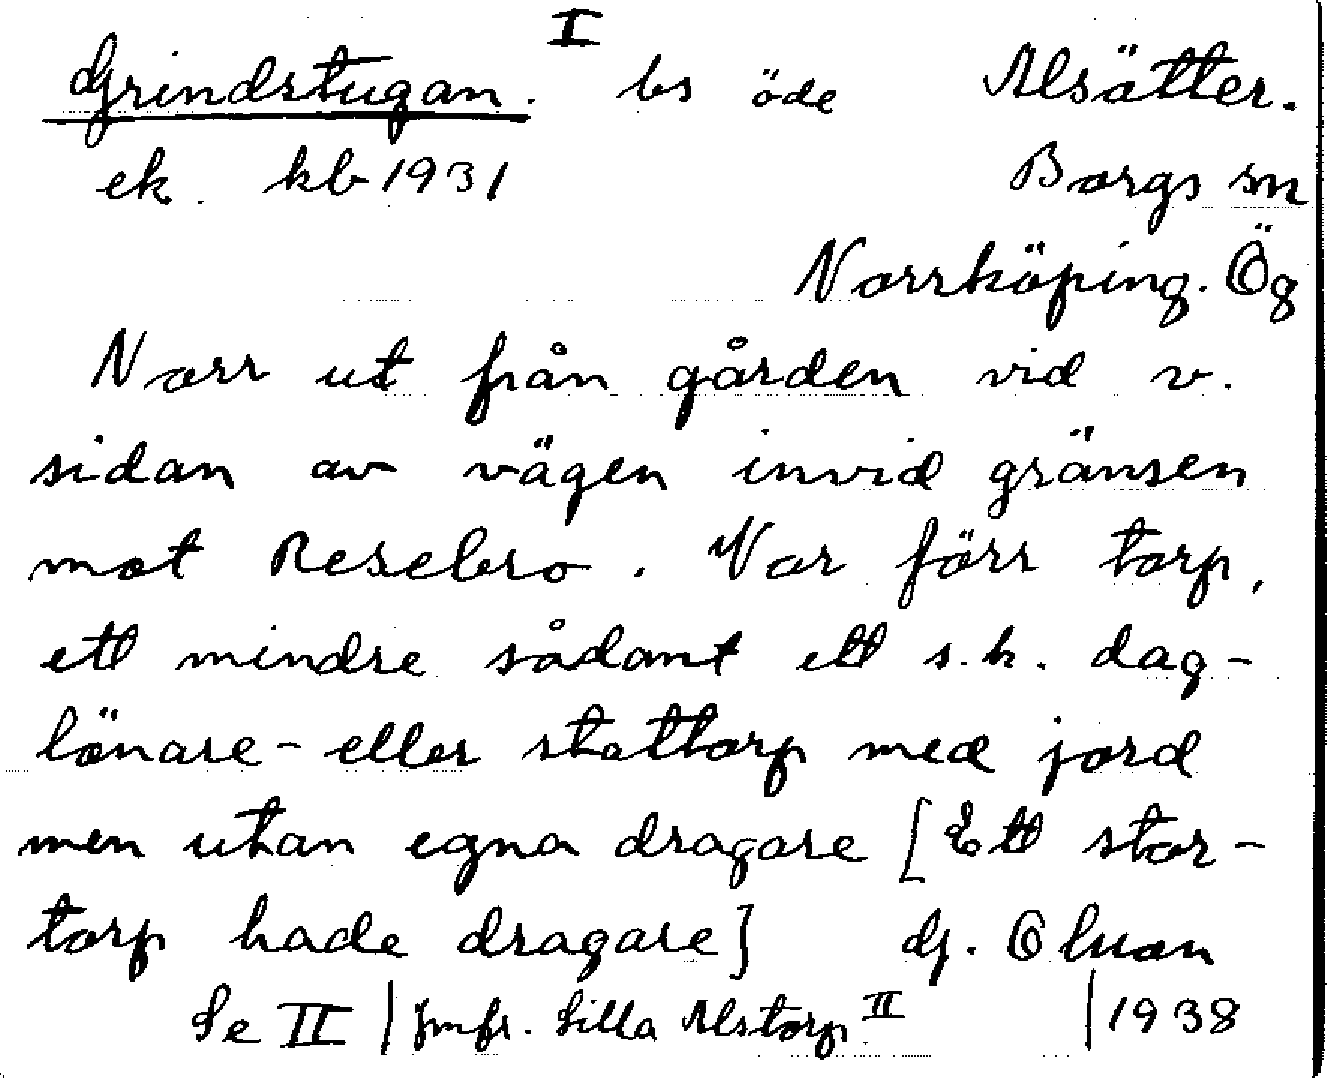 Grindstugan. I bs öde Alsätter.
ek. kb 1931 Borgs sn
Norrköping. Ög
Norr ut från gården vid v.
sidan av vägen invid gränsen
mot Resebro. Var förr torp,
ett mindre sådant ett s.k. dag-
lönare- eller stattorp med jord
men utan egna dragare [Ett stor-
torp hade dragare] G. Olson
Se II | Jmfr. Lilla Alstorp II | 1938